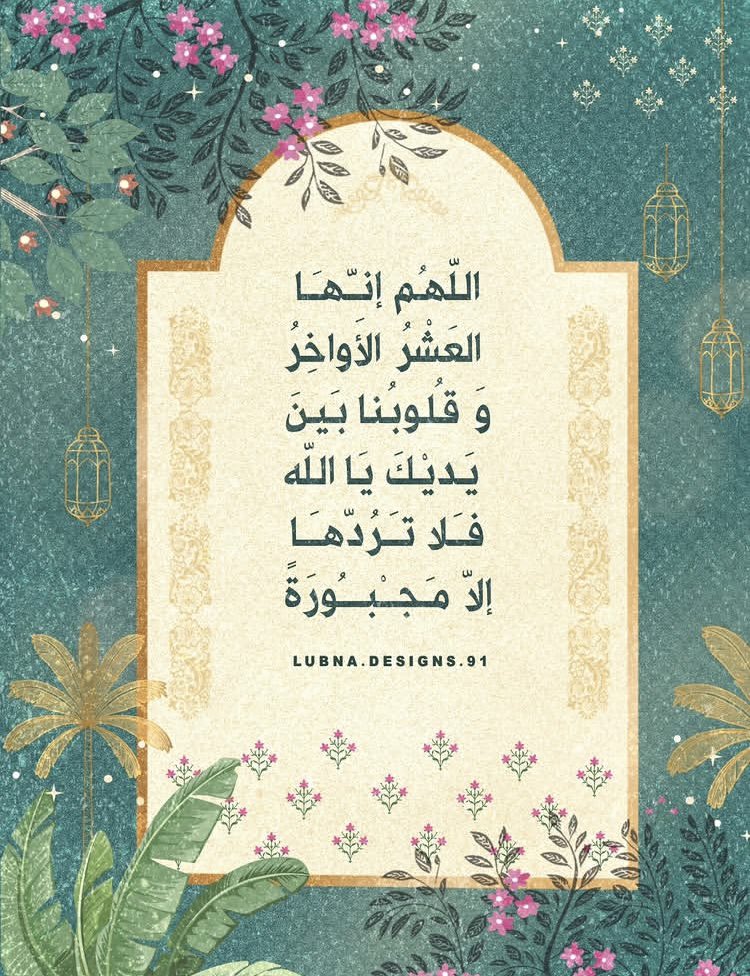 اللّهُم إنـّـهَـا
العَشْرُ الأَواخِرُ
وَ قُلوبُنا بَينَ
يَديْكَ يَا اللّه
فَـلا تَـرُدّهَـا
إلاّ مَـجـْبـُورَةً
LUBNA.DESIGNS.91